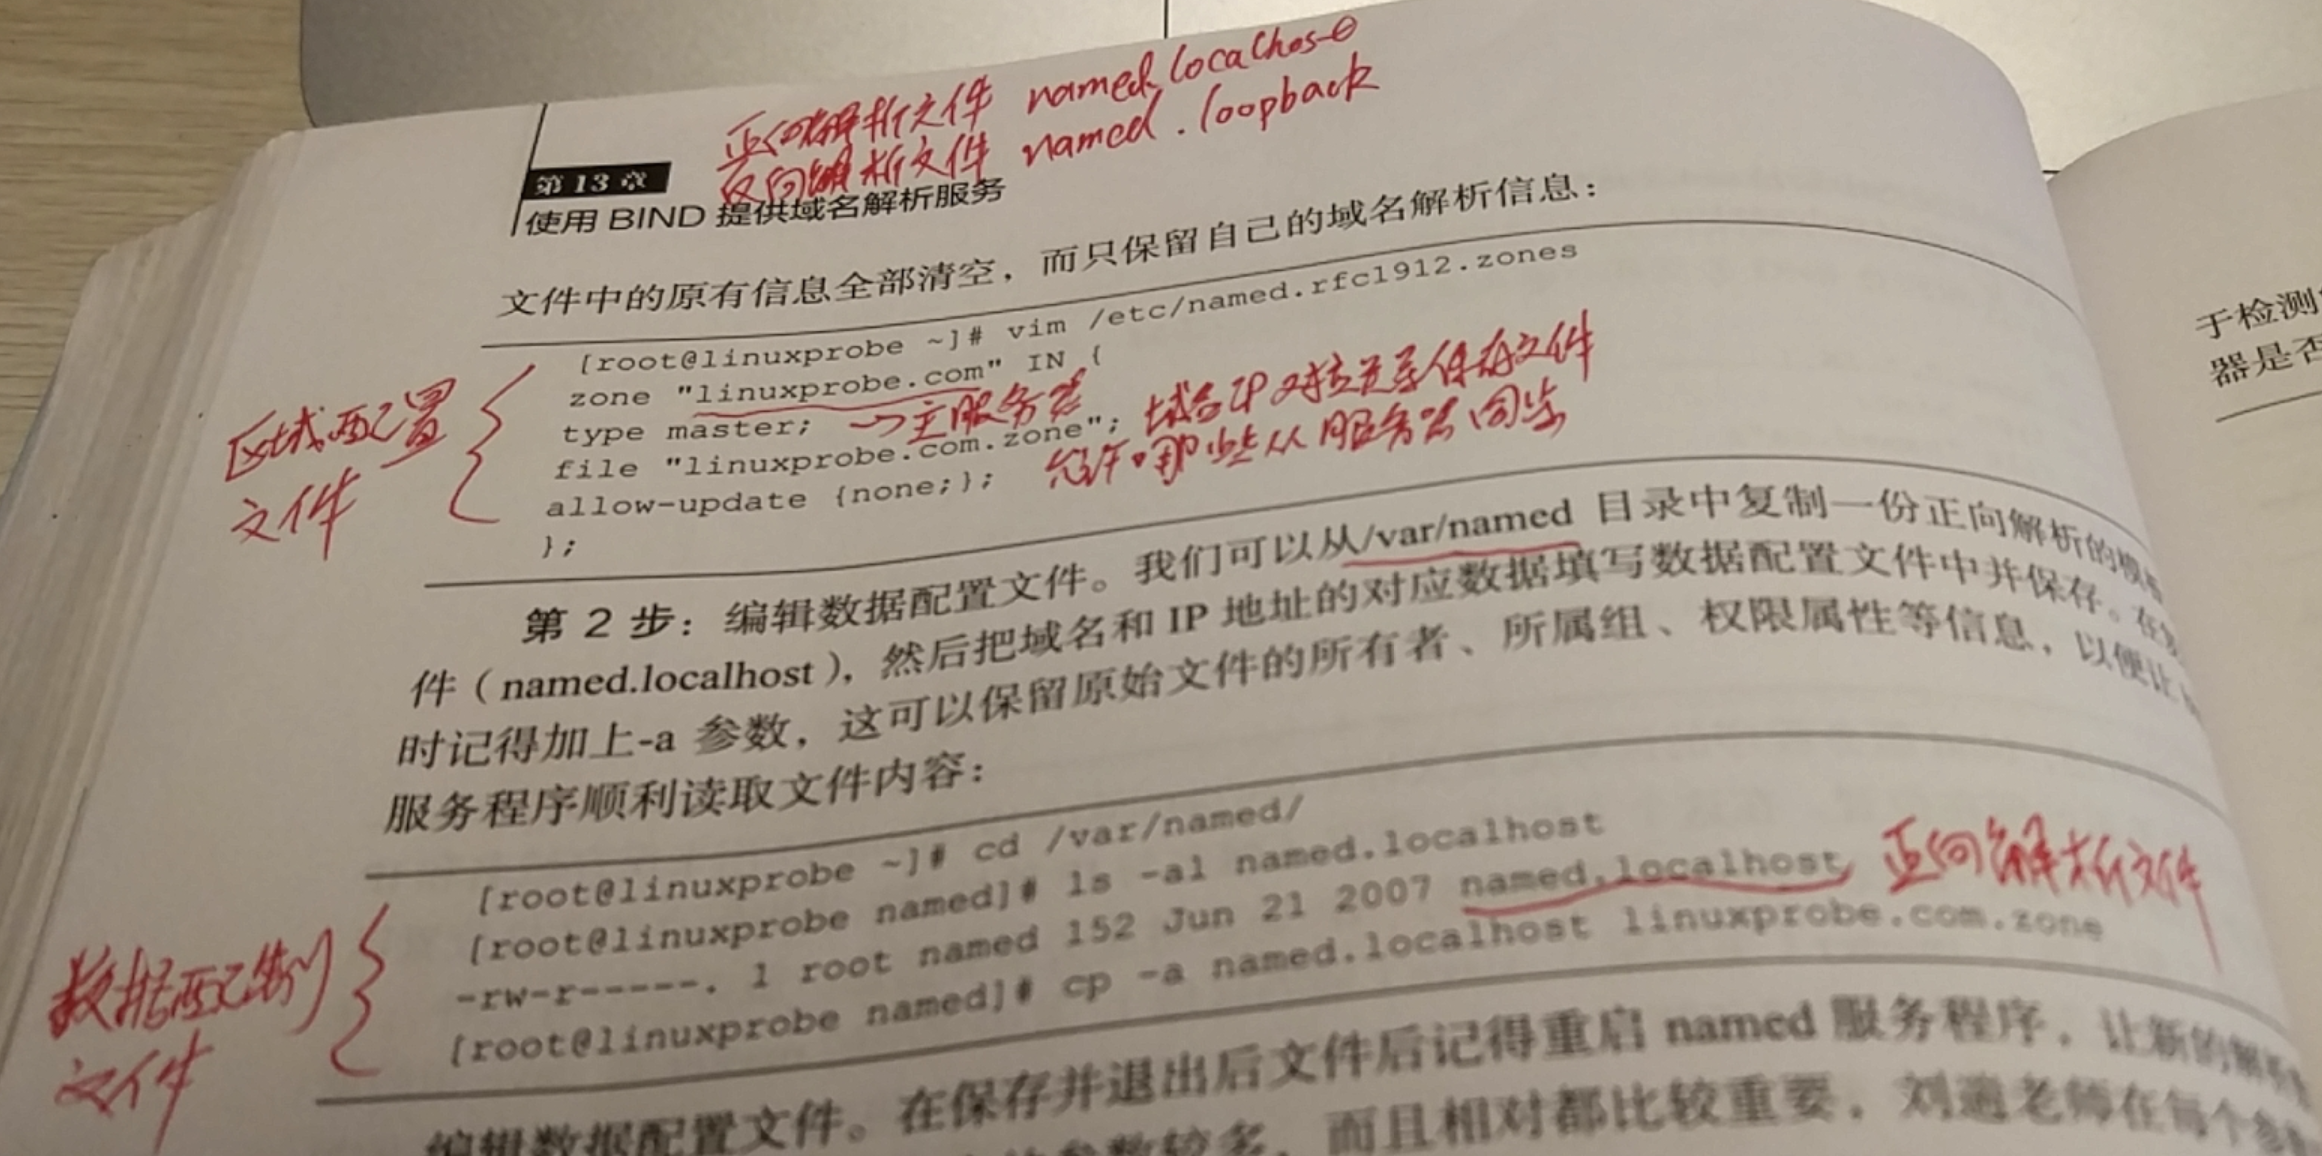 正向解析文件 named.localhost
反向解析文件 named.loopback
第 13 章
使用 BIND 提供域名解析服务
文件中的原有信息全部清空，而只保留自己的域名解析信息：
[root@linuxprobe ~]# vim /etc/named.rfc1912.zones
zone "linuxprobe.com" IN {
type master; →主服务器
file "linuxprobe.com.zone"; 域名IP对应关系保存文件
allow-update {none;}; 允许哪些从服务器同步
};
区域配置
文件
第 2 步：编辑数据配置文件。我们可以从/var/named 目录中复制一份正向解析的模
件（named.localhost），然后把域名和 IP 地址的对应数据填写数据配置文件中并保存。在
时记得加上-a 参数，这可以保留原始文件的所有者、所属组、权限属性等信息，以便让
服务程序顺利读取文件内容：
[root@linuxprobe ~]# cd /var/named/
[root@linuxprobe named]# ls -al named.localhost
-rw-r-----. 1 root named 152 Jun 21 2007 named.localhost 正向解析文件
[root@linuxprobe named]# cp -a named.localhost linuxprobe.com.zone
数据配制
文件
编辑数据配置文件。在保存并退出后文件后记得重启 named 服务程序，让新的解
参数较多，而且相对都比较重要，刘遄老师在每个
于检测
器是否